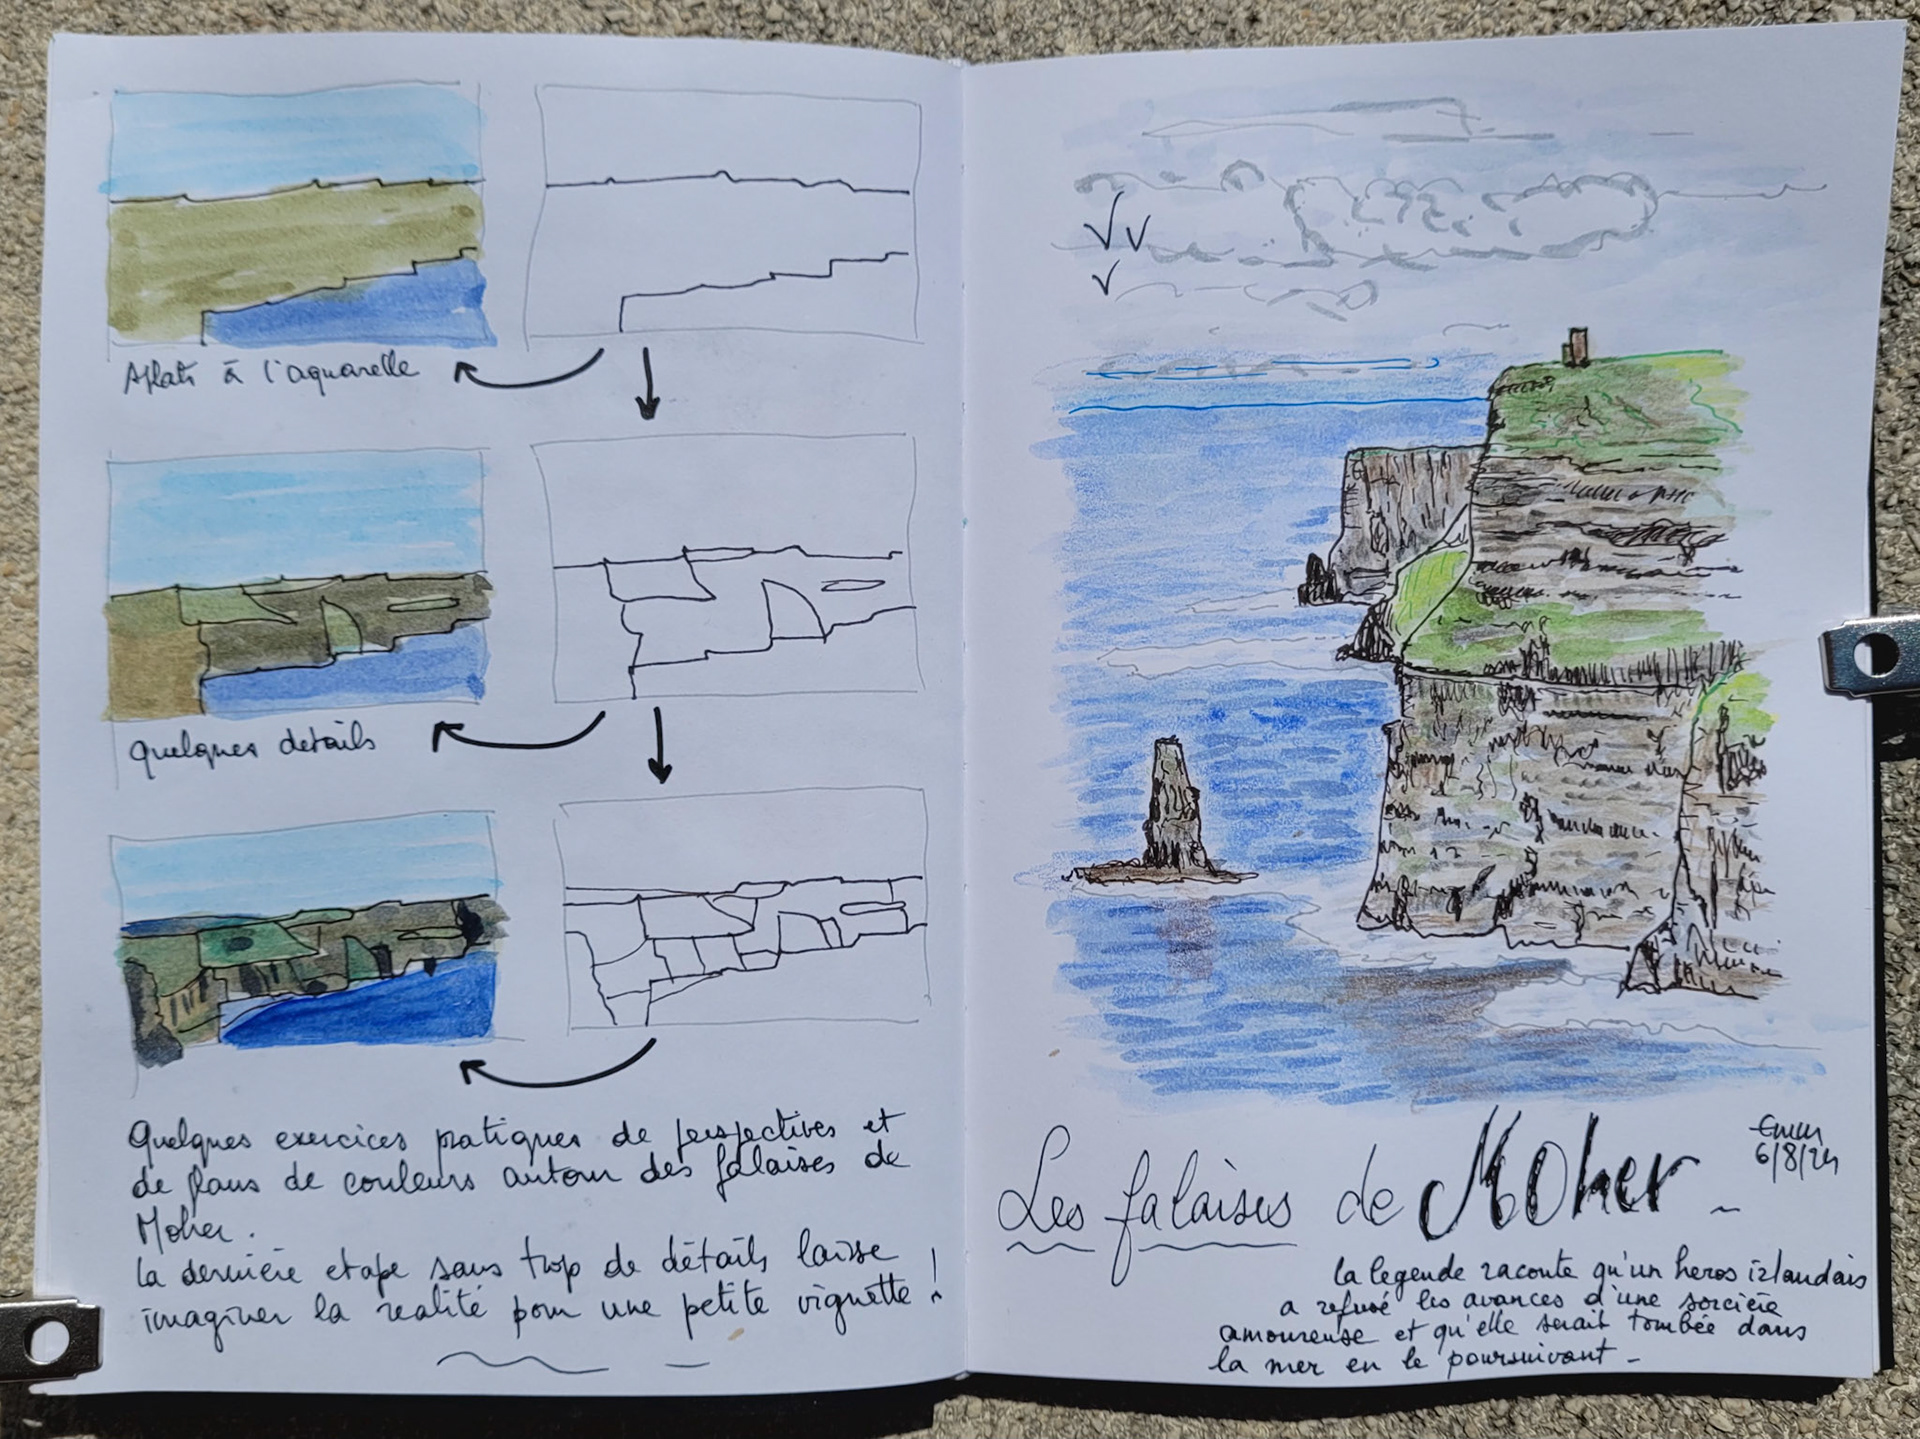 Aplats à l'aquarelle
Quelques details
Quelques exercices pratiques de perspectives et
de plans de couleurs autour des falaises de
Moher.
la dernière etape sans trop de détails laisse
imaginer la realité pour une petite vignette !
Les falaises de Moher
6/8/24
la legende raconte qu'un heros izlandais
a refusé les avances d'une sorcière
amoureuse et qu'elle serait tombée dans
la mer en le poursuivant -